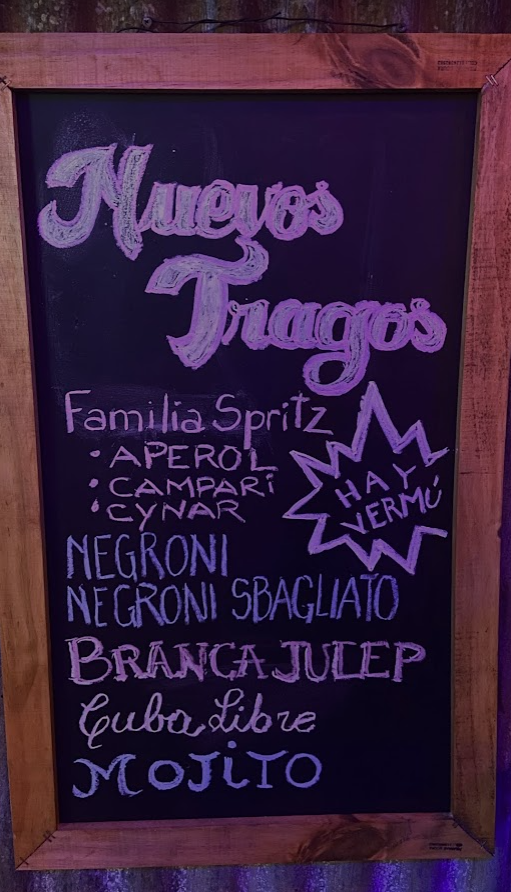 Nuevos
Tragos
Familia Spritz
• APEROL
• CAMPARi
• CYNAR
HAY
VERMÚ
NEGRONI
NEGRONI SBAGLIATO
BRANCA JULEP
Cuba Libre
MOJiTO